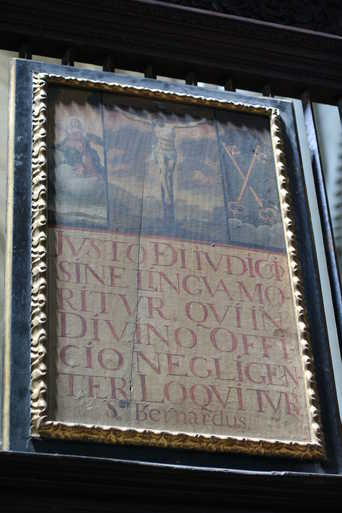 JVSTO DEI JVDICIO
SINE LINGVA MO-
RITVR, QVI IN
DIVINO OFFI-
CIO NEGLIGEN-
TER LOQVITVR
S. Bernardus.